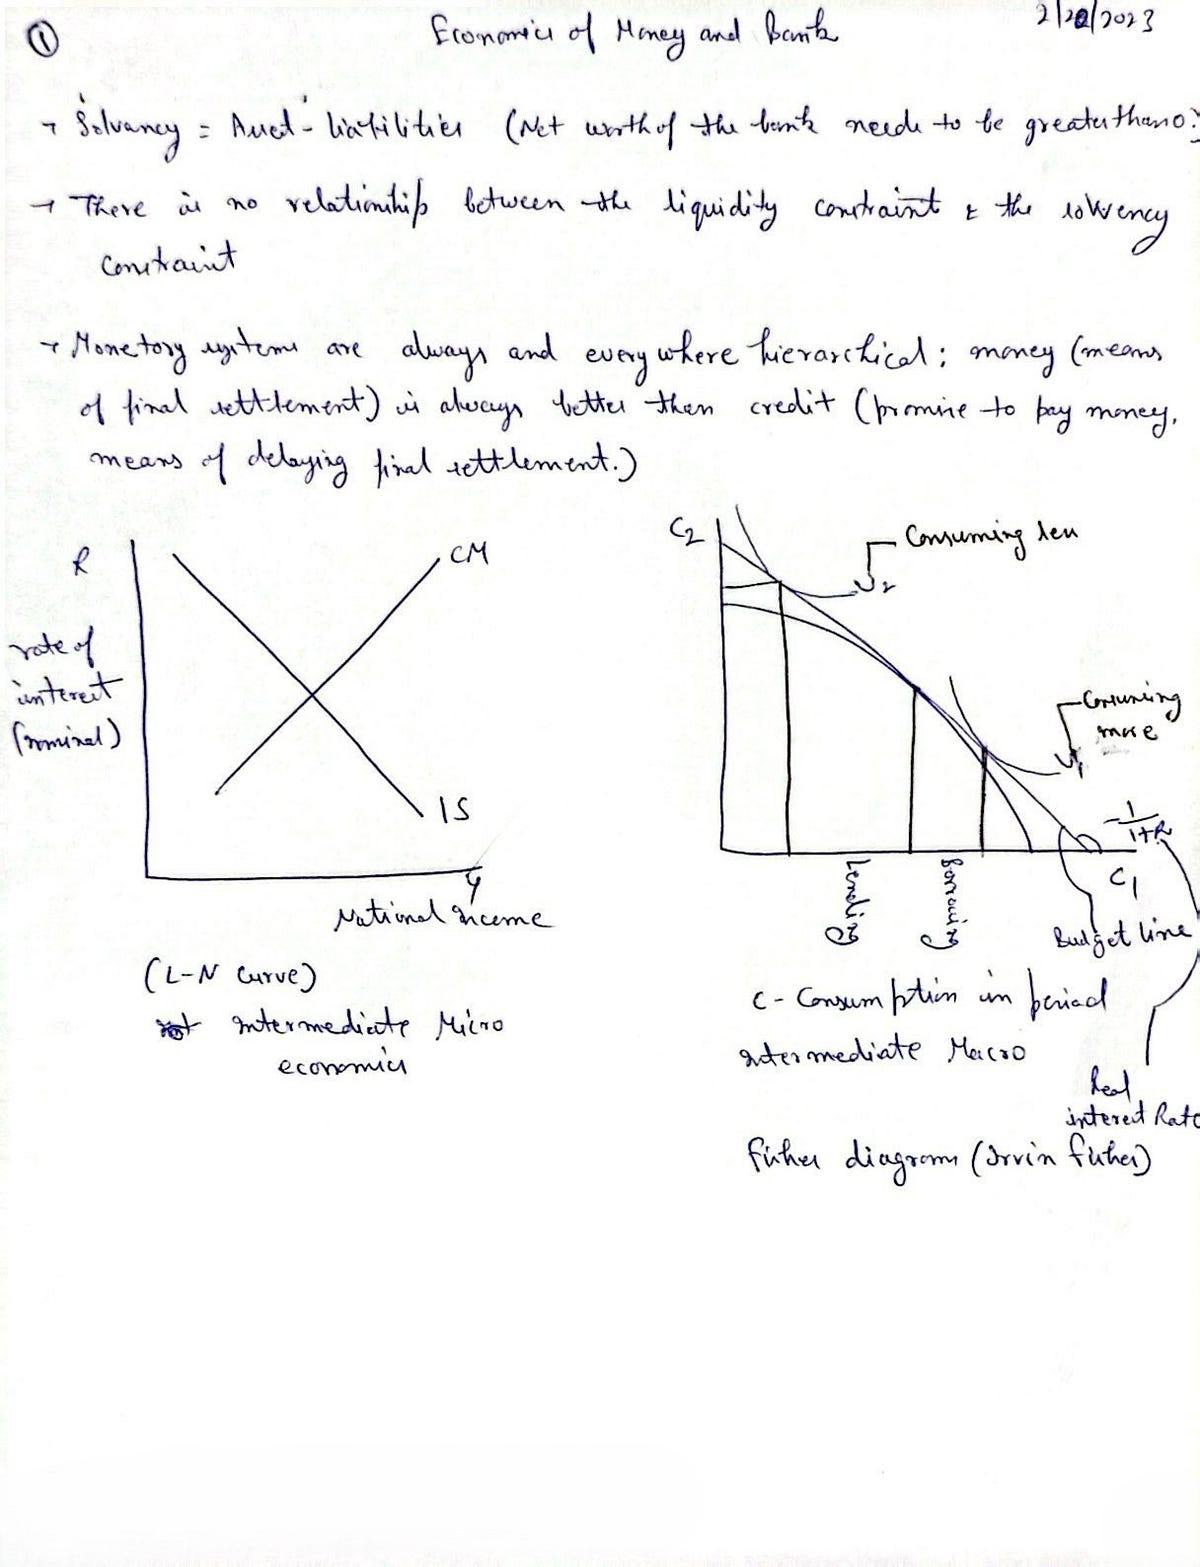 ①
Economics of Money and Bank
2/20/2023
→ Solvancy = Asset - liabilities (Net worth of the bank needs to be greater than 0)
→ There is no relationship between the liquidity constraint & the solvency
constraint
→ Monetory systems are always and everywhere hierarchical; money (means
of final settlement) is always better than credit (promise to pay money,
means of delaying final settlement.)
R
rate of
interest
(nominal)
CM
IS
Y
National income
(L-N Curve)
intermediate Micro
economics
C2
Consuming less
U2
Consuming
more
U1
-1/1+R
C1
Lending
Borrowing
Budget line
C - Consumption in period
intermediate Macro
Real
interest Rate
Fisher diagram (Irvin Fisher)